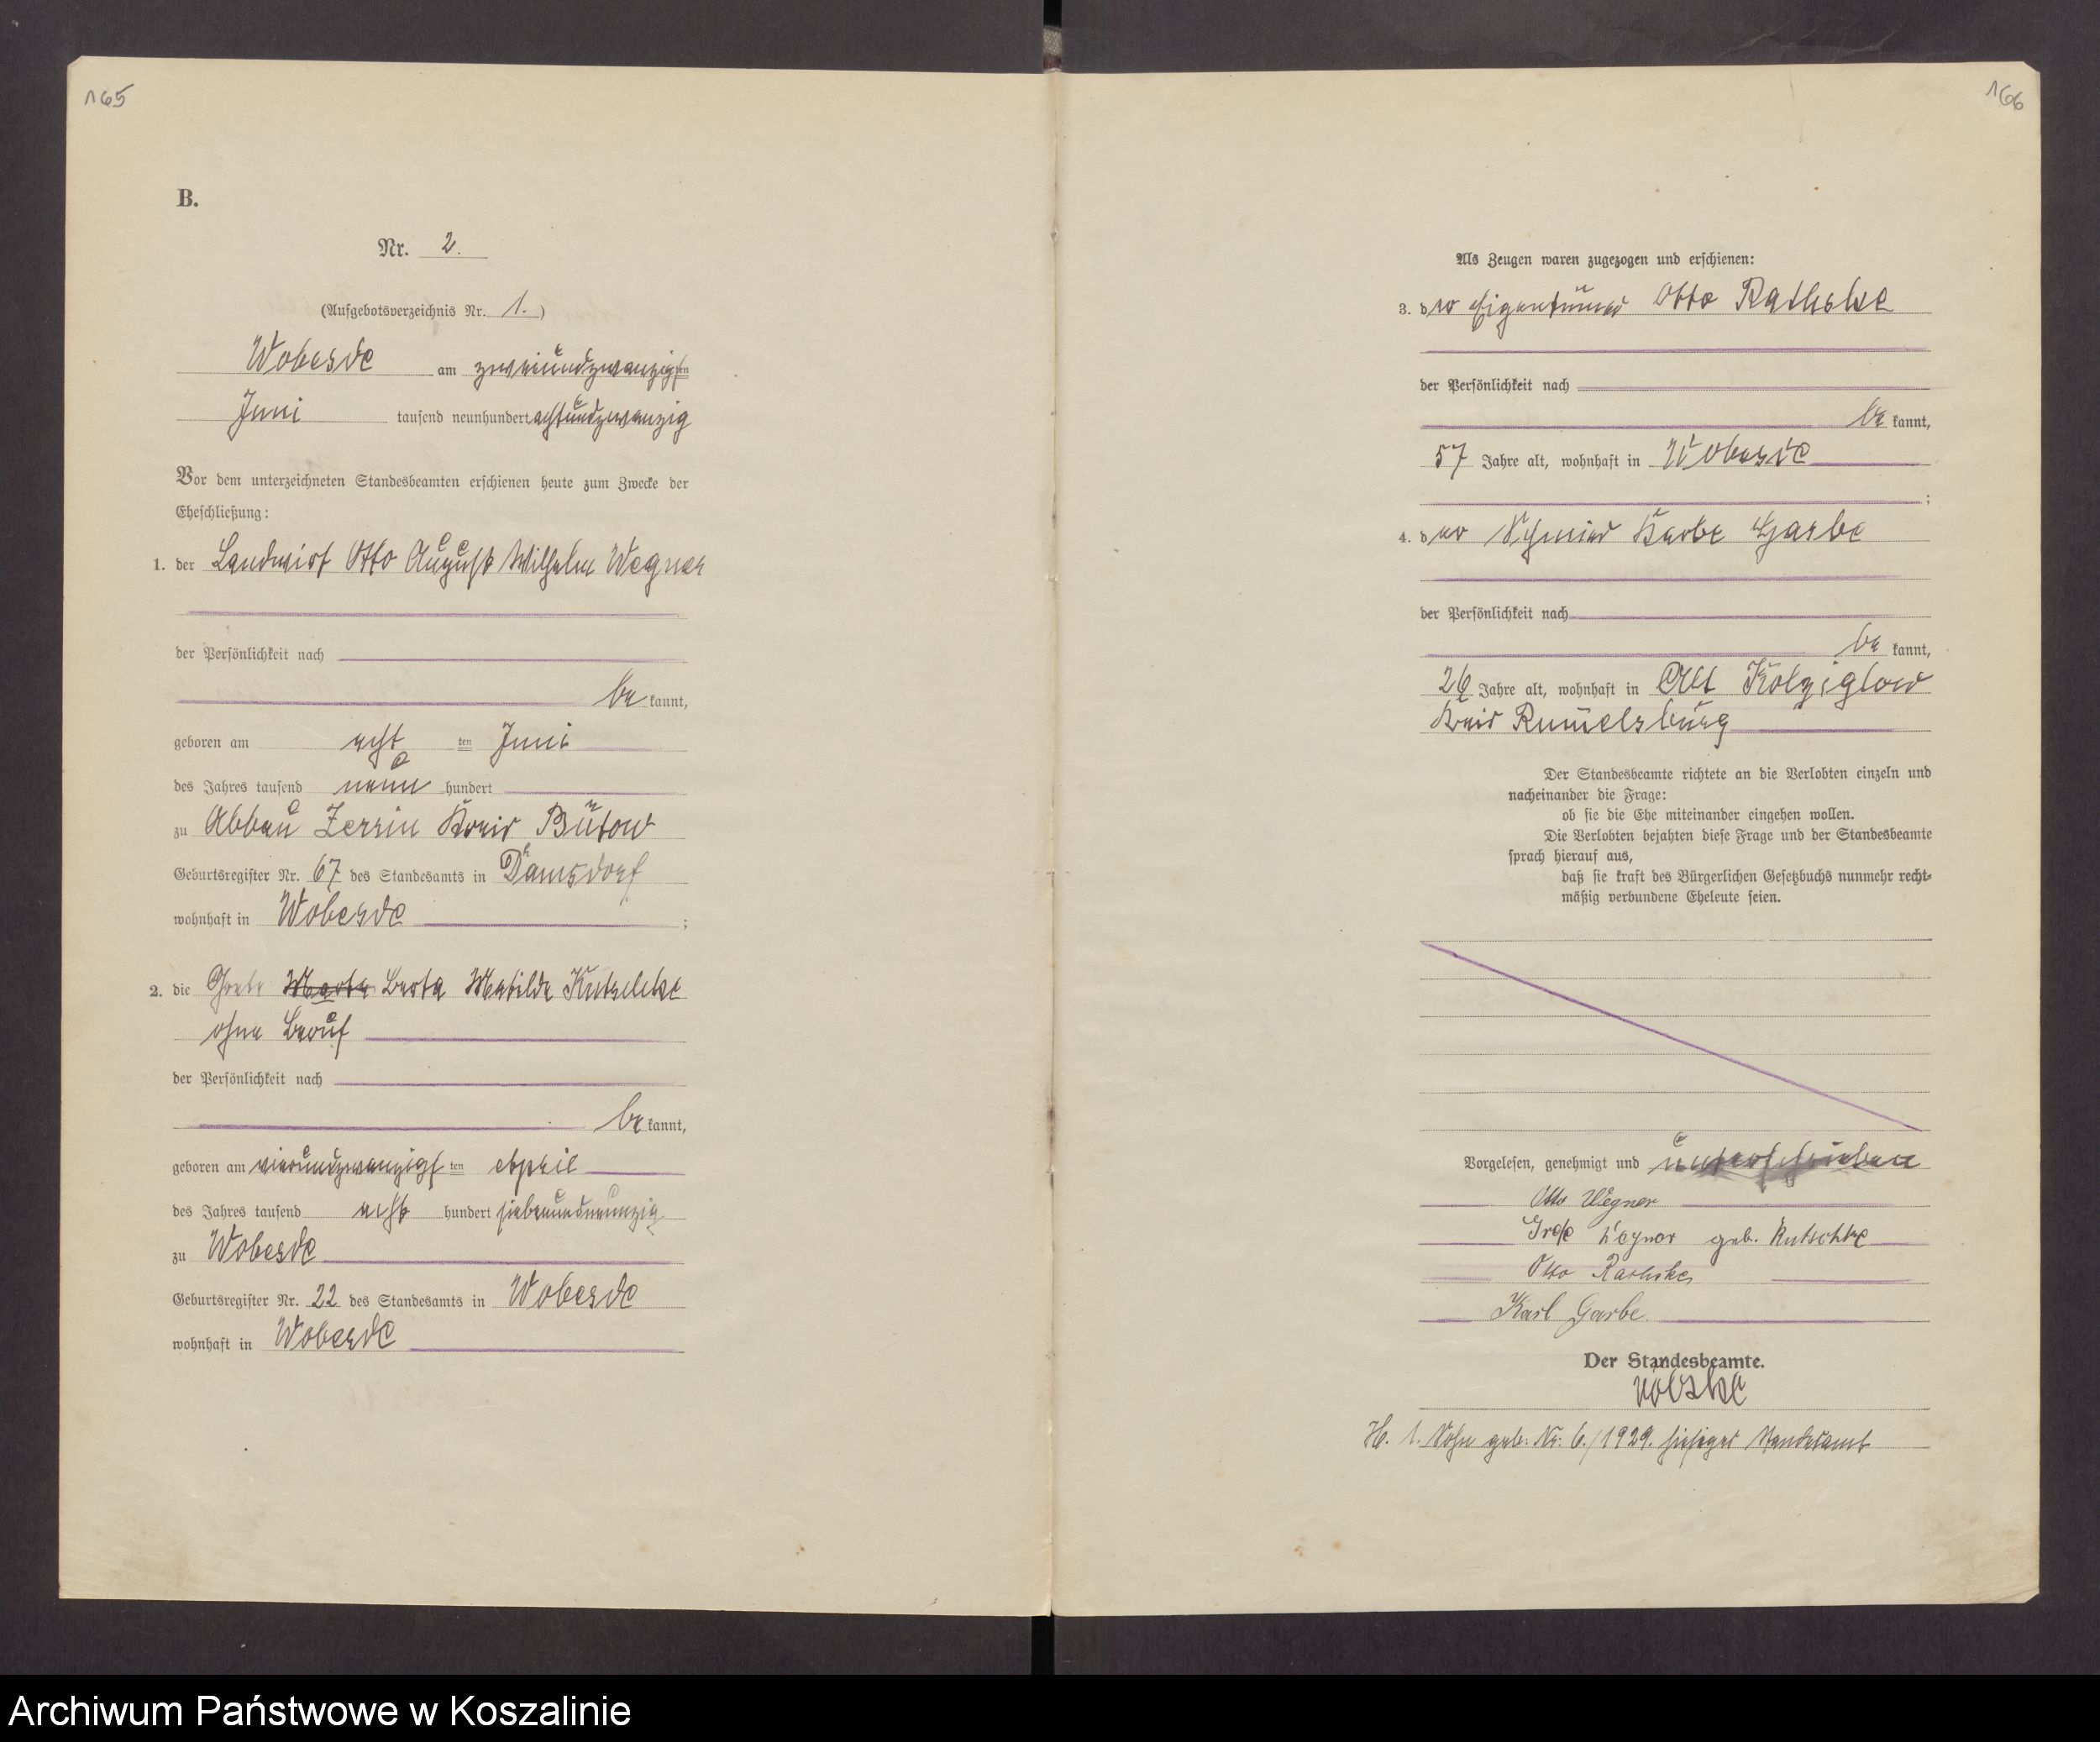 165
B.
Nr. 2.
(Aufgebotsverzeichnis Nr. 1.)
Wobesde am zweiundzwanzigsten
Juni tausend neunhundert achtundzwanzig
Vor dem unterzeichneten Standesbeamten erschienen heute zum Zwecke der
Eheschließung:
1. der Landwirt Otto August Wilhelm Wegner
der Persönlichkeit nach
be kannt,
geboren am acht ten Juni
des Jahres tausend neun hundert
zu Abbau Zerrin Kreis Bütow
Geburtsregister Nr. 67 des Standesamts in Damsdorf
wohnhaft in Wobesde ;
2. die Grete Marta Berta Matilde Kutschke
ohne Beruf
der Persönlichkeit nach
be kannt,
geboren am vierundzwanzigs ten April
des Jahres tausend acht hundert siebenundneunzig
zu Wobesde
Geburtsregister Nr. 22 des Standesamts in Wobesde
wohnhaft in Wobesde
166
Als Zeugen waren zugezogen und erschienen:
3. der Eigentümer Otto Rathske
der Persönlichkeit nach
be kannt,
57 Jahre alt, wohnhaft in Wobesde
;
4. der Schmied Garbe
der Persönlichkeit nach
be kannt,
26 Jahre alt, wohnhaft in Alt Kolziglow
Kreis Rummelsburg
Der Standesbeamte richtete an die Verlobten einzeln und
nacheinander die Frage:
ob sie die Ehe miteinander eingehen wollen.
Die Verlobten bejahten diese Frage und der Standesbeamte
sprach hierauf aus,
daß sie kraft des Bürgerlichen Gesetzbuchs nunmehr recht-
mäßig verbundene Eheleute seien.
Vorgelesen, genehmigt und unterschrieben
Otto Wegner
Grete Wegner geb. Kutschke
Otto Rathske
Karl Garbe.
Der Standesbeamte.
H. 1. Sohn geb: Nr: 6./1929. hiesiges Standesamt
Archiwum Państwowe w Koszalinie